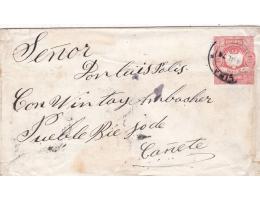 Señor
Don Luis Solis
Con Wintay Ambasher
Pueble Bie jo de
Cañete